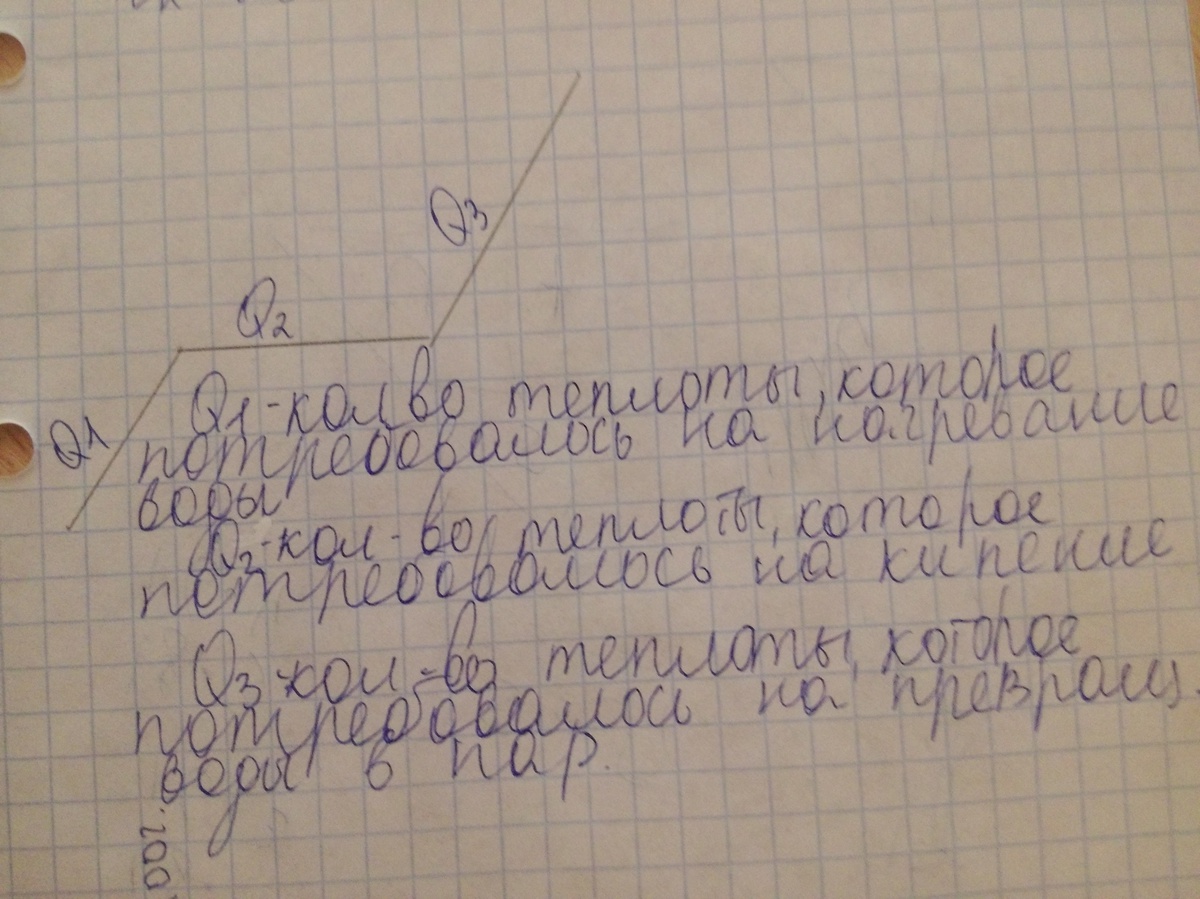 Q3
Q2
Q1
Q1-колво теплоты, которое
потребовалось на нагревание
воды
Q2-кол-во теплоты, которое
потребовалось на кипение
Q3-кол-во теплоты, которое
потребовалось на превращ.
воды в пар.